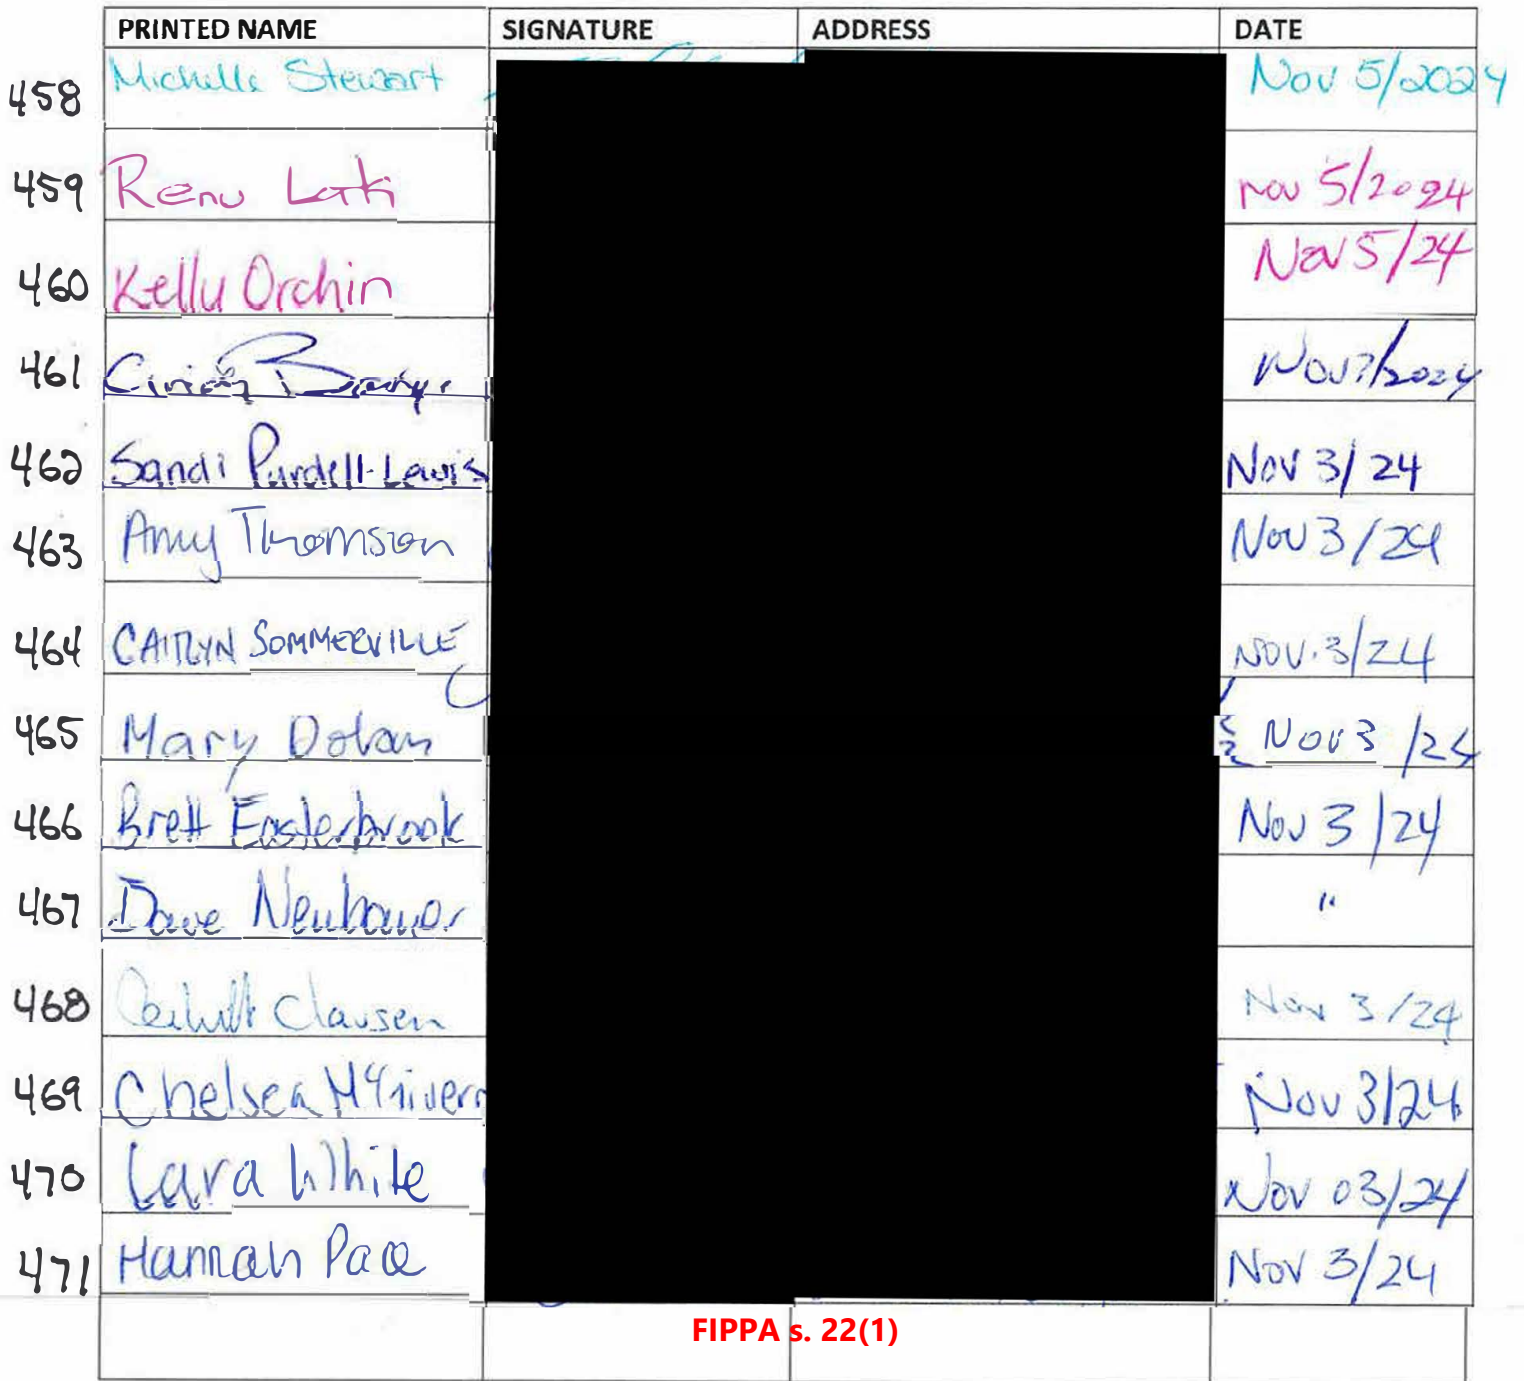 PRINTED NAME SIGNATURE ADDRESS DATE
458 Michelle Stewart Nov 5/2024
459 Renu Nov 5/2024
460 Kelly Orchin Nov 5/24
461 Cindy /2024
462 Sandi Purdell-Lewis Nov 3/24
463 Amy Thomson Nov 3/24
464 CAITLYN SOMMERVILLE NOV. 3/24
465 Mary Dolan Nov 3 /24
466 Brett Easterbrook Nov 3/24
467 Dave Neubauer "
468 Clausen Nov 3/24
469 Chelsea Nov 3/24
470 Cara White Nov 03/24
471 Hannah Pace Nov 3/24
FIPPA s. 22(1)